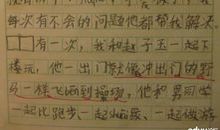 每次有不会的问题他都帮我解答
有一次，我和赵子玉一起下
楼玩，他一出门就像冲出门的野
马一样飞洒到操场，他和男同学
一起比跑步、一起做游